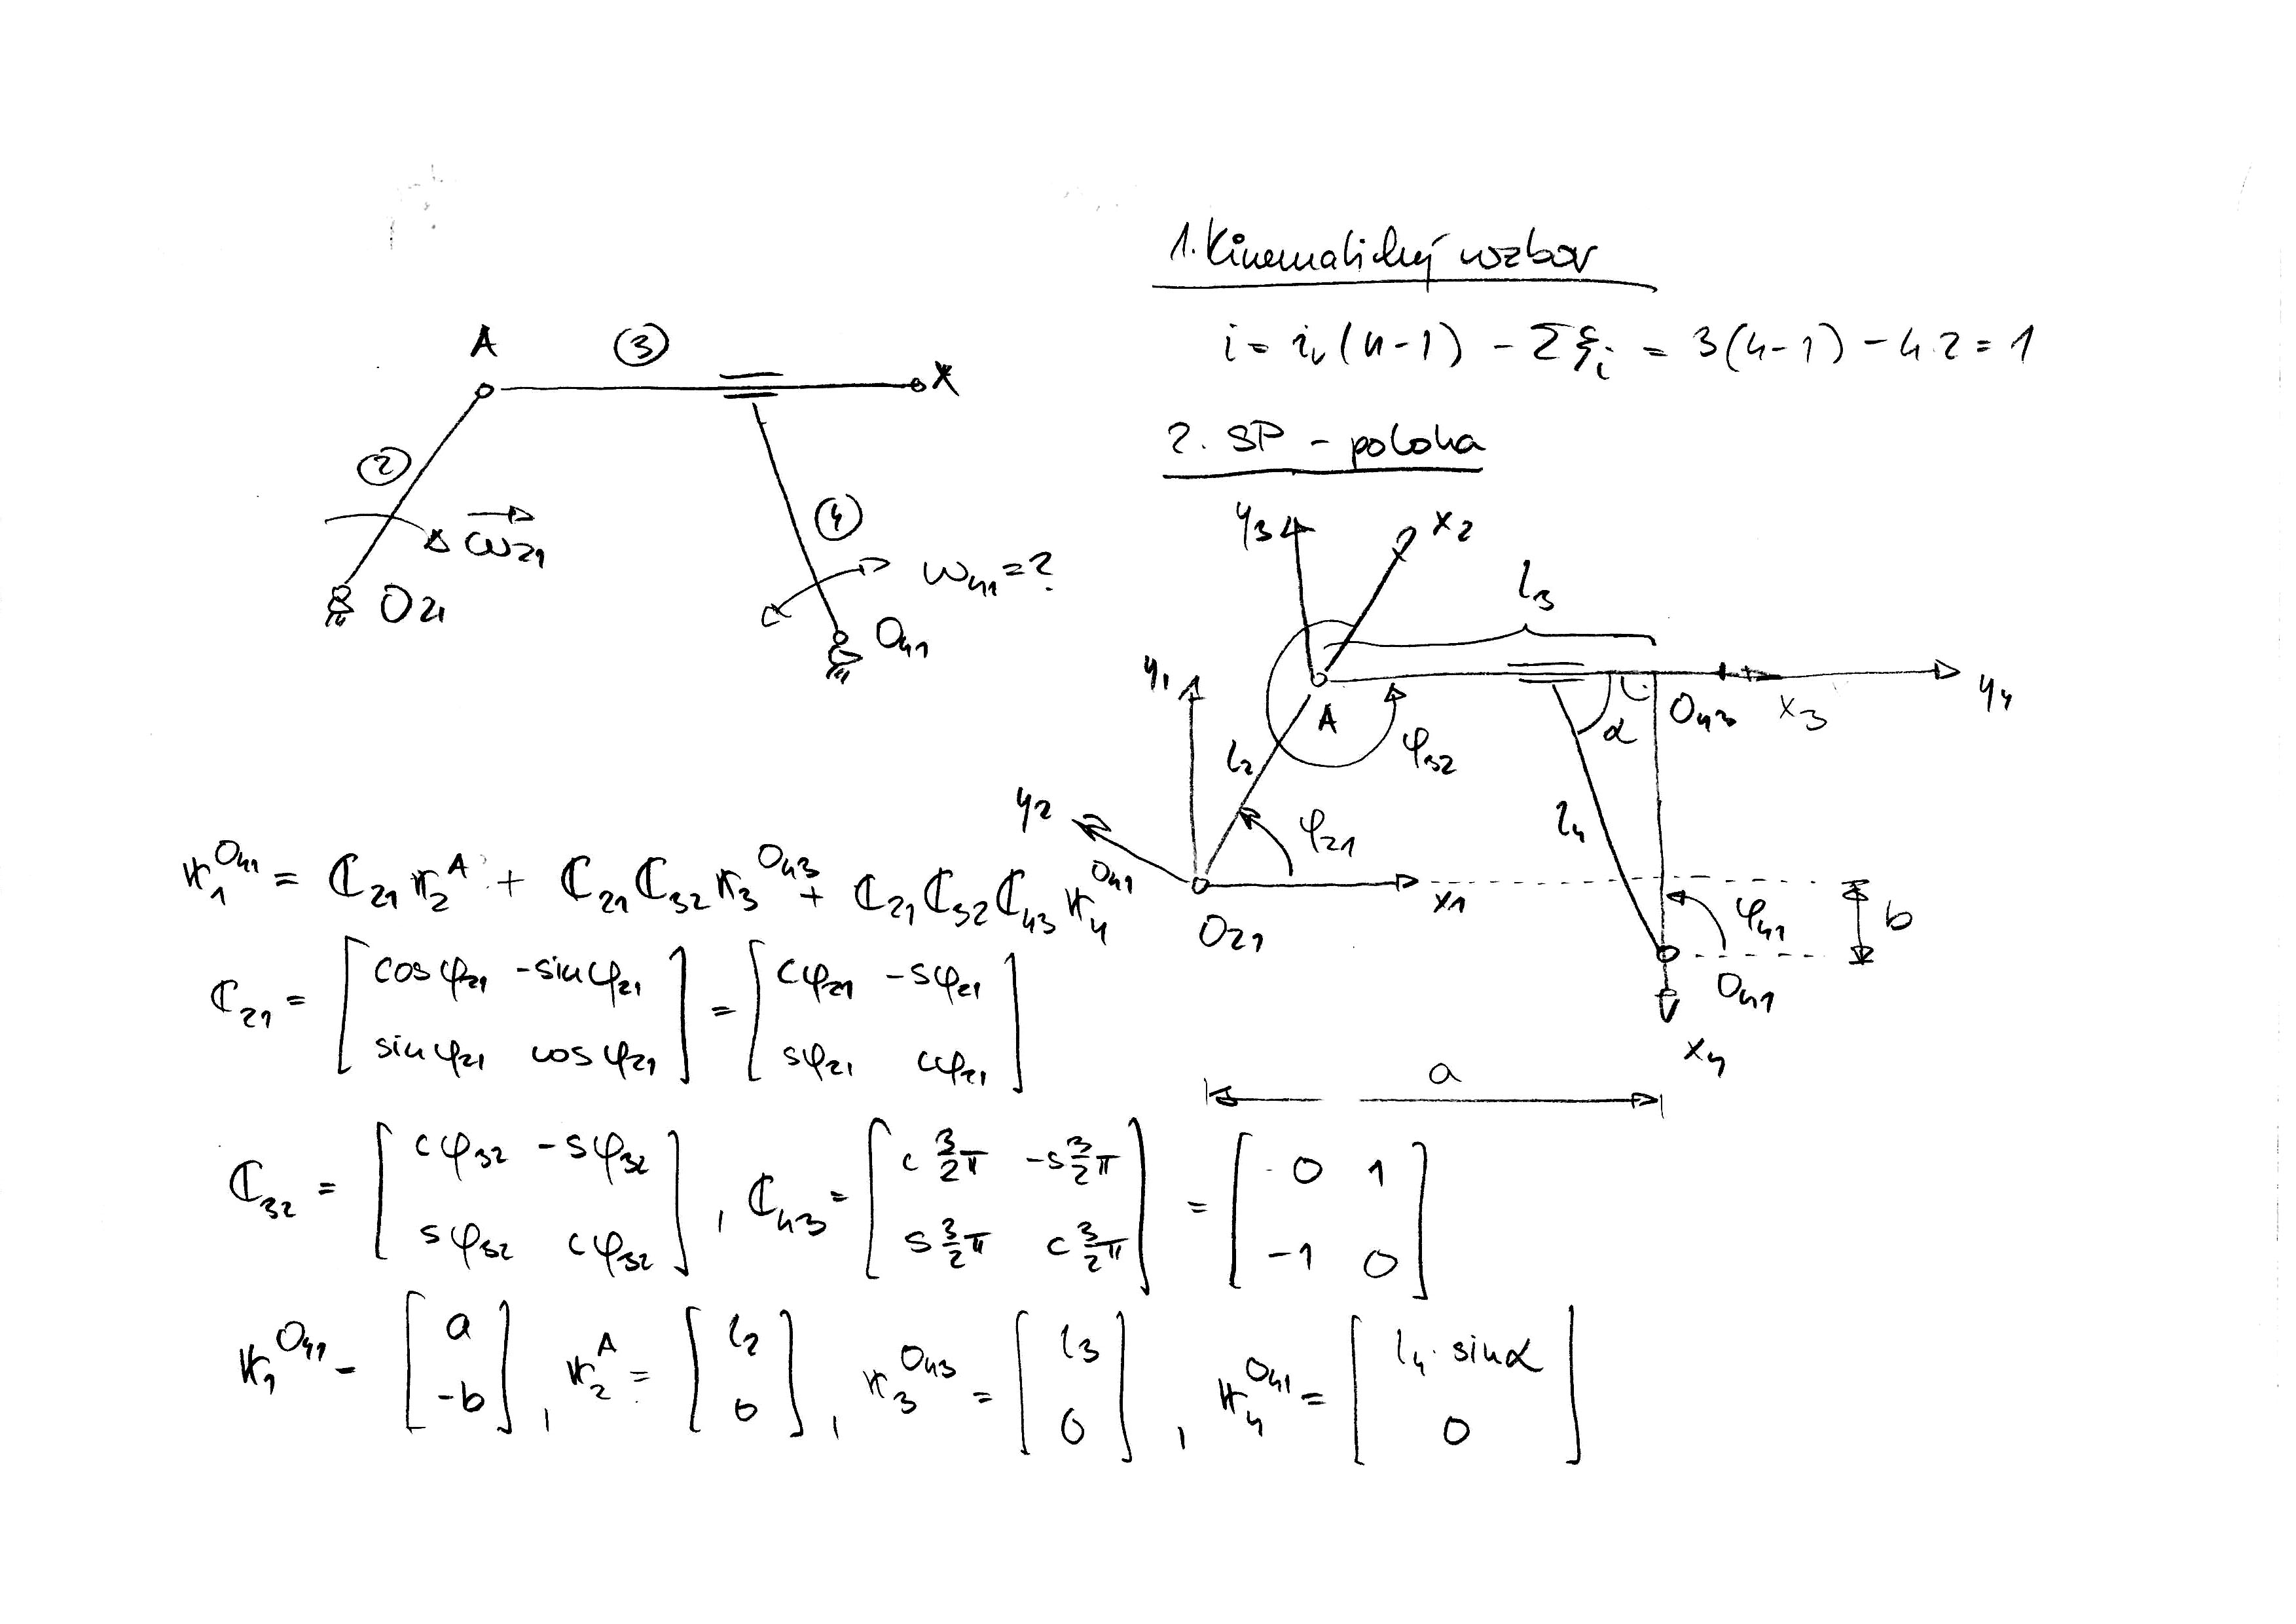 1. Kinematický rozbor
i = iᵥ(n-1) - Σξᵢ = 3(4-1) - 4.2 = 1
A ③ X
② ω₂₁
④ ω₄₁ = ?
O₂₁ O₄₁
2. SP - poloha
y₃ x₂
l₃
y₁ A α O₄₃ x₃ y₄
l₂ φ₃₂
y₂ φ₂₁ l₄
x₁ φ₄₁ b
O₂₁ O₄₁
x₄
a
r₁^O₄₁ = C₂₁ r₂^A + C₂₁ C₃₂ r₃^O₄₃ + C₂₁ C₃₂ C₄₃ r₄^O₄₁
C₂₁ = [cosφ₂₁ -sinφ₂₁; sinφ₂₁ cosφ₂₁] = [cφ₂₁ -sφ₂₁; sφ₂₁ cφ₂₁]
C₃₂ = [cφ₃₂ -sφ₃₂; sφ₃₂ cφ₃₂], C₄₃ = [c 3/2 π -s 3/2 π; s 3/2 π c 3/2 π] = [0 1; -1 0]
r₁^O₄₁ - [a; -b], r₂^A = [l₂; 0], r₃^O₄₃ = [l₃; 0], r₄^O₄₁ = [l₄. sinα; 0]